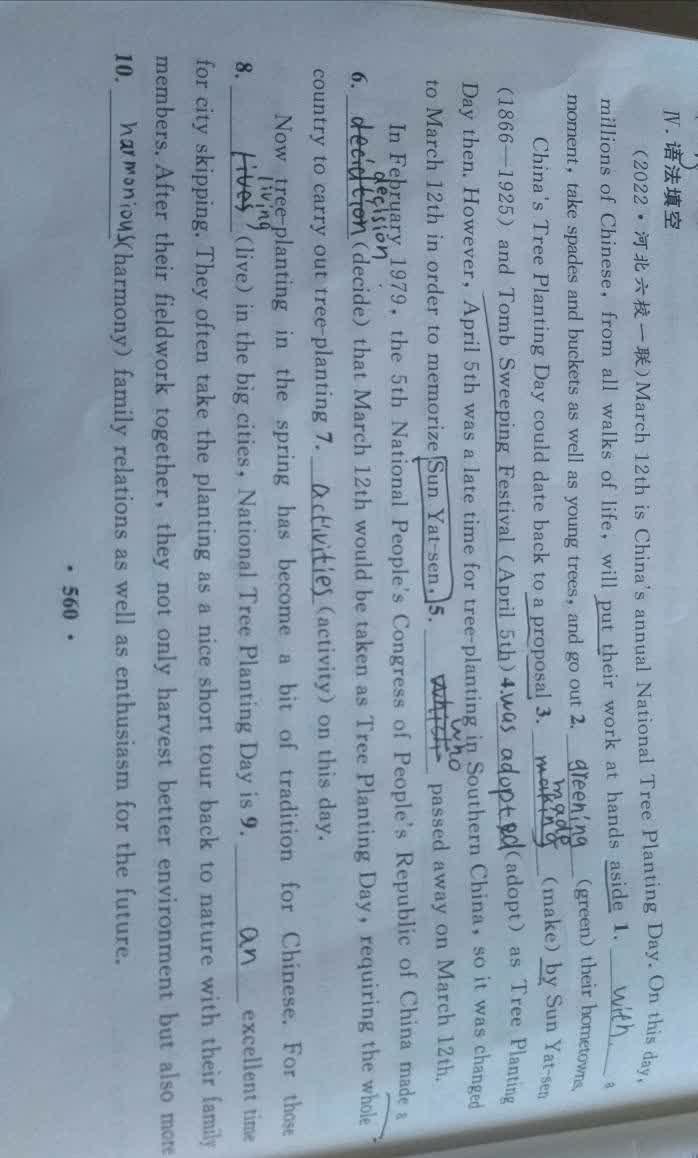 Ⅳ. 语法填空
(2022·河北六校一联)March 12th is China's annual National Tree Planting Day. On this day,
millions of Chinese, from all walks of life, will put their work at hands aside 1. with a
moment, take spades and buckets as well as young trees, and go out 2. greening (green) their hometowns.
China's Tree Planting Day could date back to a proposal 3. making made (make) by Sun Yat-sen
(1866—1925) and Tomb Sweeping Festival (April 5th) 4. was adopted (adopt) as Tree Planting
Day then. However, April 5th was a late time for tree-planting in Southern China, so it was changed
to March 12th in order to memorize Sun Yat-sen, 5. which who passed away on March 12th.
In February 1979, the 5th National People's Congress of People's Republic of China made a
6. decision (decide) that March 12th would be taken as Tree Planting Day, requiring the whole
country to carry out tree-planting 7. activities (activity) on this day.
Now tree-planting in the spring has become a bit of tradition for Chinese. For those
8. lives living (live) in the big cities, National Tree Planting Day is 9. an excellent time
for city skipping. They often take the planting as a nice short tour back to nature with their family
members. After their fieldwork together, they not only harvest better environment but also more
10. harmonious (harmony) family relations as well as enthusiasm for the future.
· 560 ·